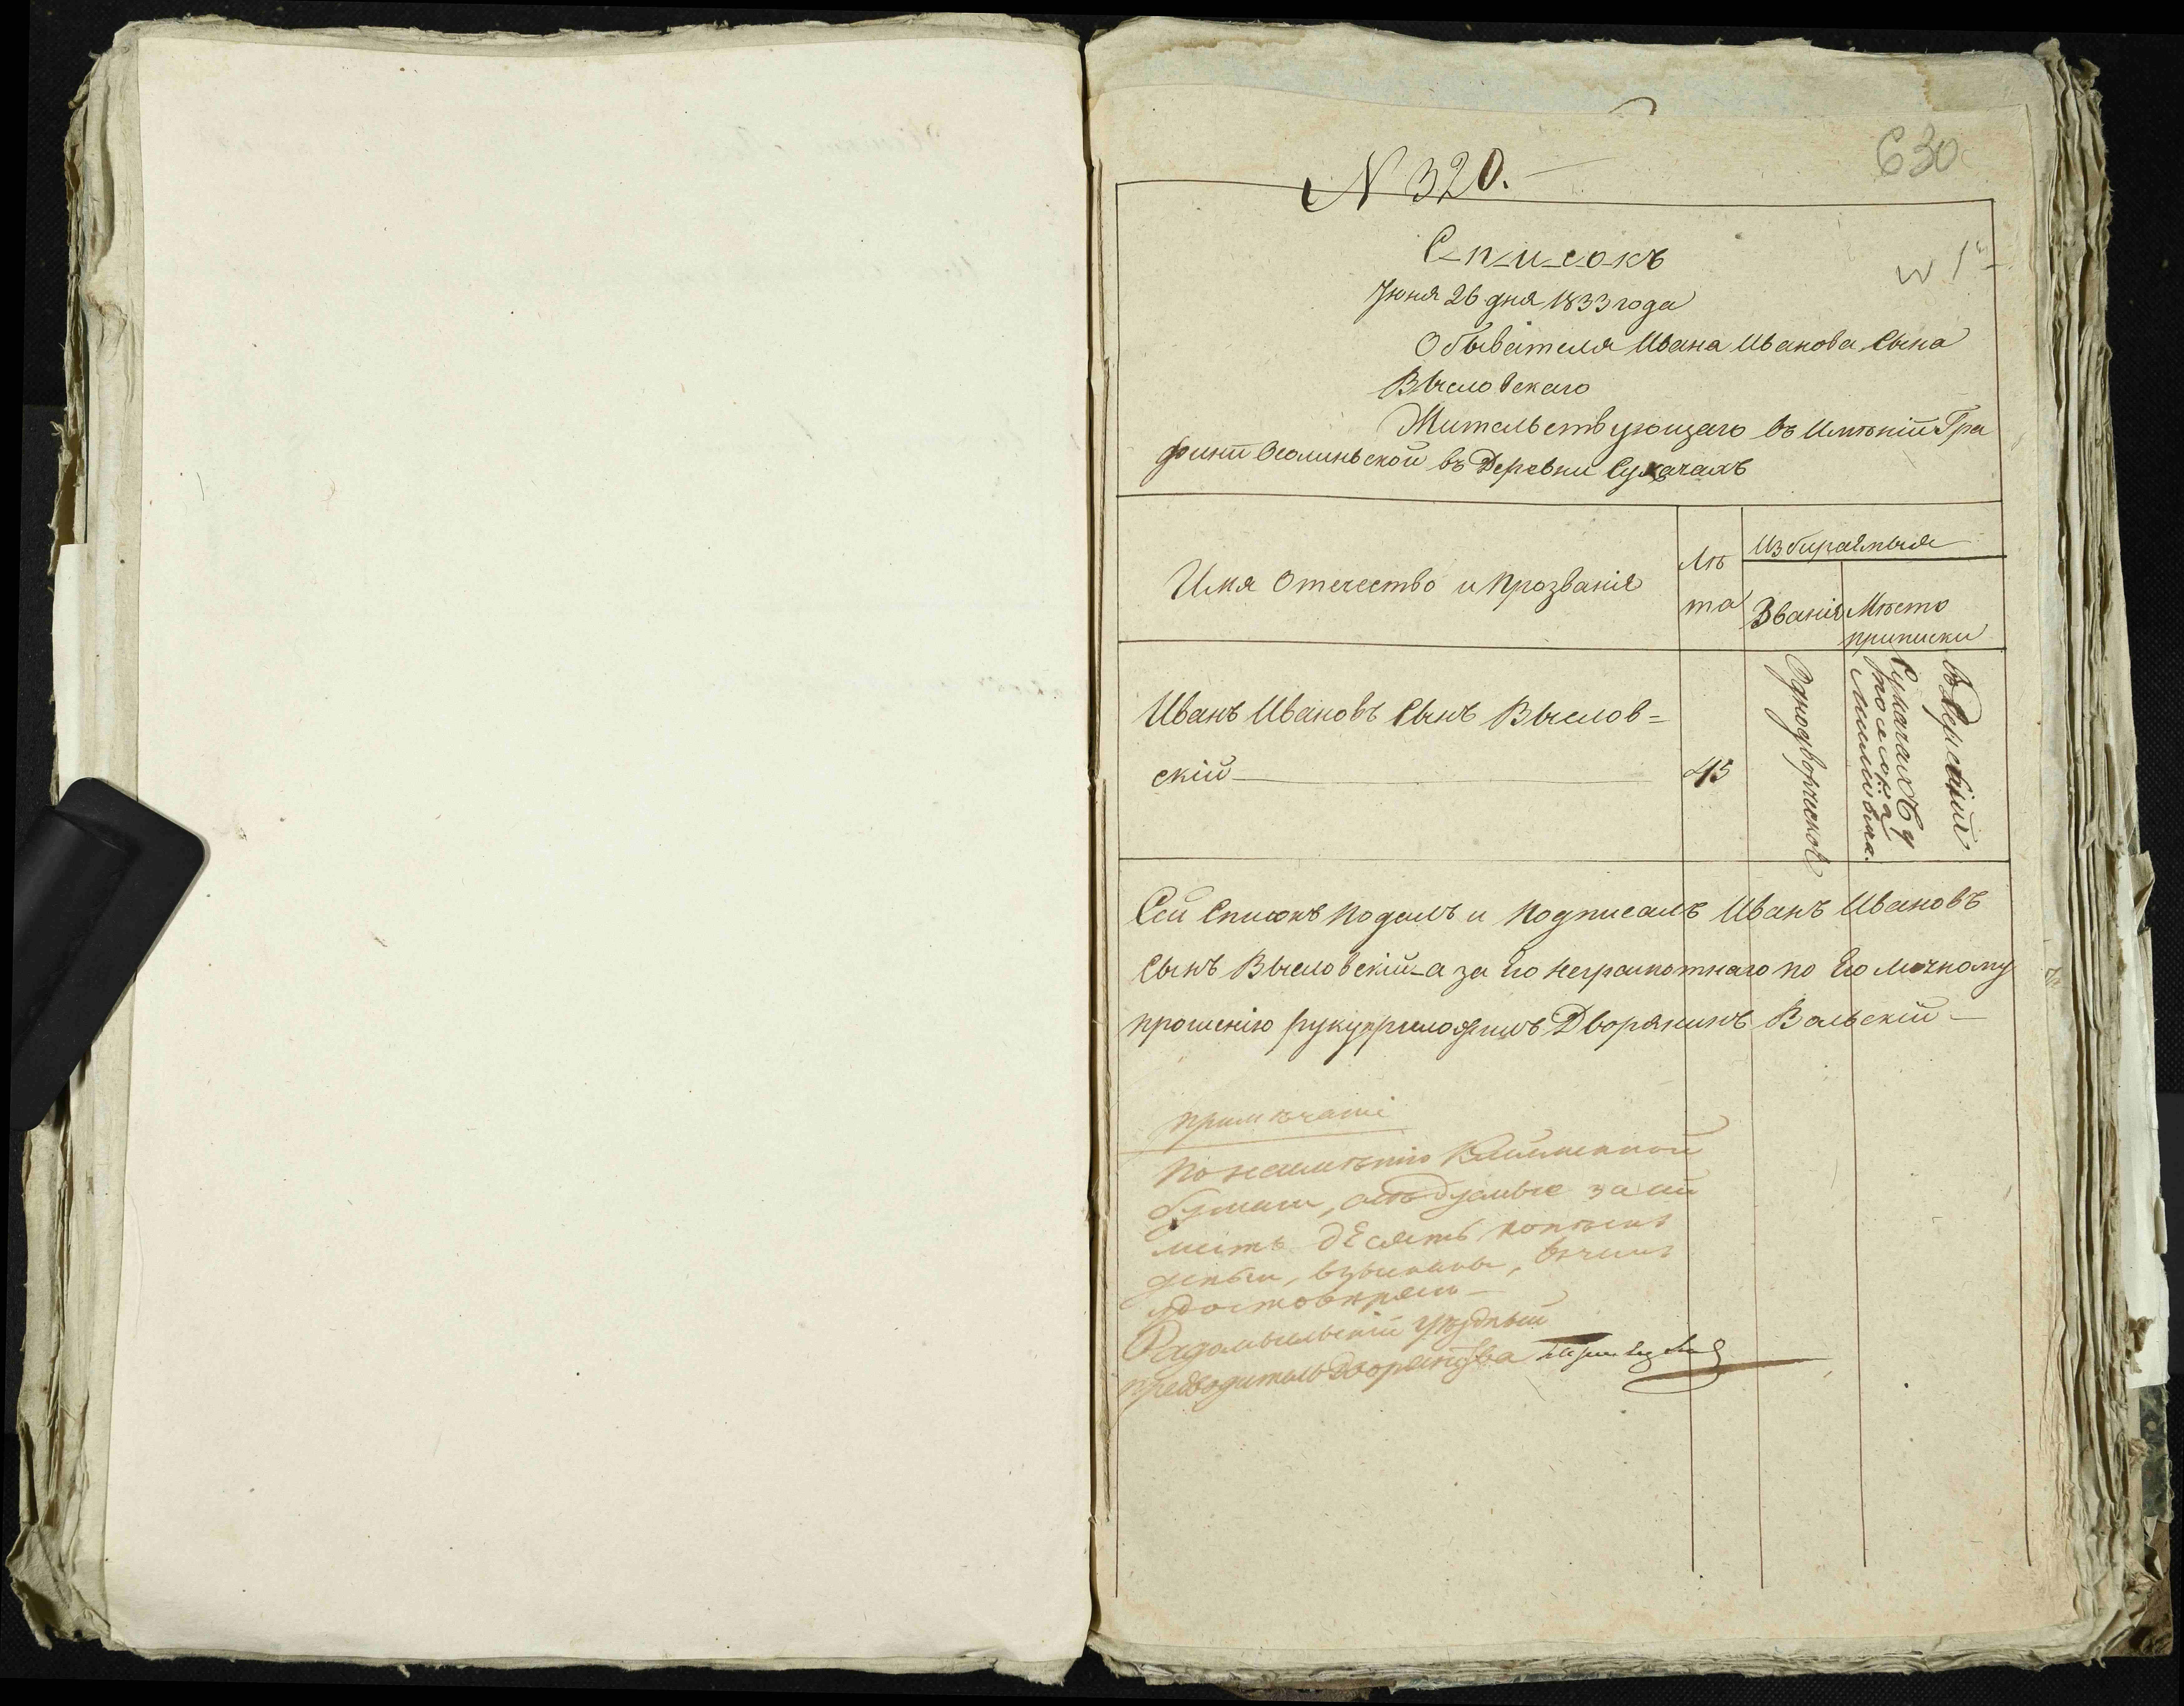 630
N 320.
С-п-и-с-о-къ
Іюня 26 дня 1833 года
Обывателя Ивана Иванова Сына
Высловскаго
Жительствующаго въ Имѣніи Гра
фини Осолиньской въ Деревни Сукачахъ
Имя Отечество и Прозваніе
Лѣ
та
Избираемыя
Званіе
Мѣсто
приписки
Иванъ Ивановъ Сынъ Выслов=
скій
45
Однодворческое
въ Деревни
Сукачахъ у
Сей Списокъ Подалъ и Подписалъ Иванъ Ивановъ
Сынъ Высловскій а за Его неграмотнаго по Его личному
прошенію руку приложилъ Дворянинъ Вольскій
примѣчаніе
По неимѣнію
бумаги, слѣдуемые за
листъ десять копѣекъ
деньги, взысканы, въ чемъ
удостовѣряю
Радомысльскій уѣздный
предводитель Дворянства